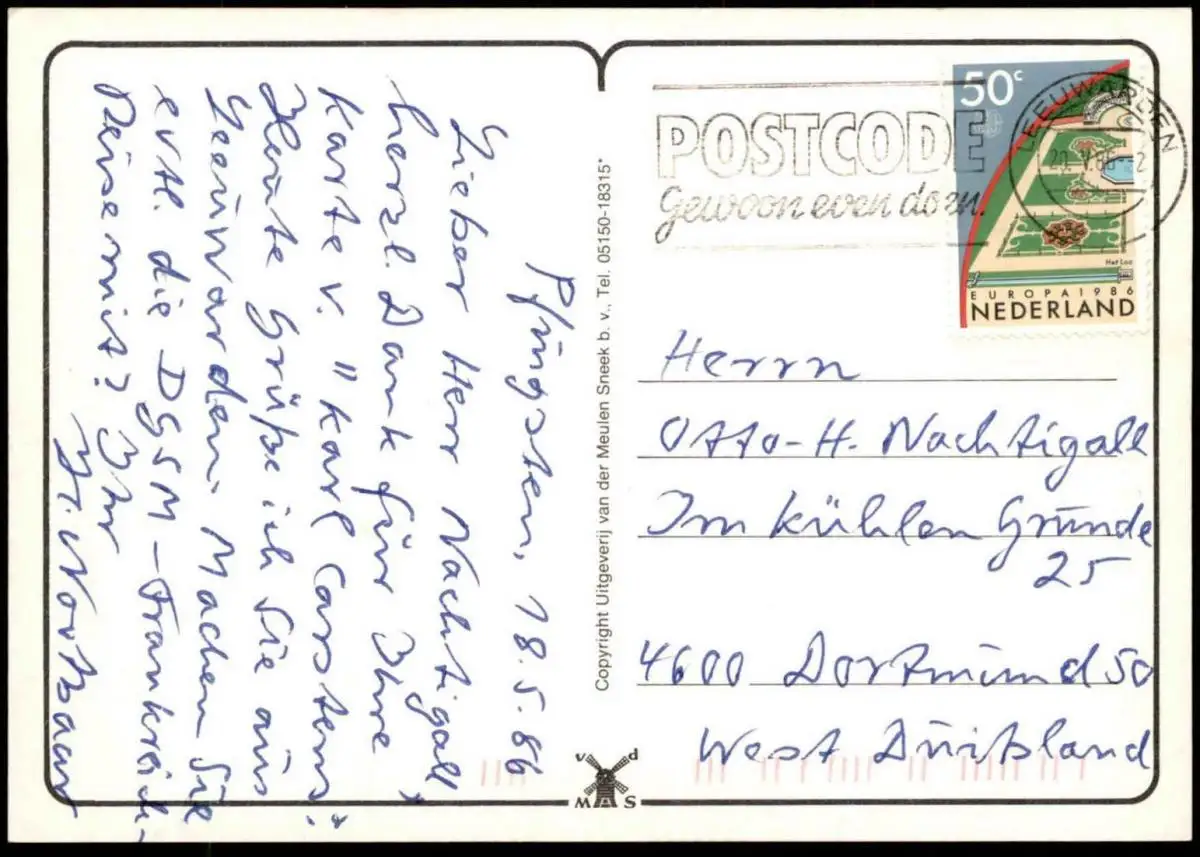 Pfingsten, 18.5.86
Lieber Herr Nachtigall,
herzl. Dank für Ihre
Karte v. "Karl Carstens".
Heute grüße ich Sie aus
Leeuwarden. Machen Sie
evtl. die DGSM-Frankreich-
Reise mit? Ihr
Copyright Uitgeverij van der Meulen Sneek b. v., Tel. 05150-18315*
v d
MAS
POSTCODE
Gewoon even doen.
LEEUWARDEN
50c
Het Loo
EUROPA 1986
NEDERLAND
Herrn
Otto-H. Nachtigall
Im Kühlen Grunde
25
4600 Dortmund 50
West Duitsland